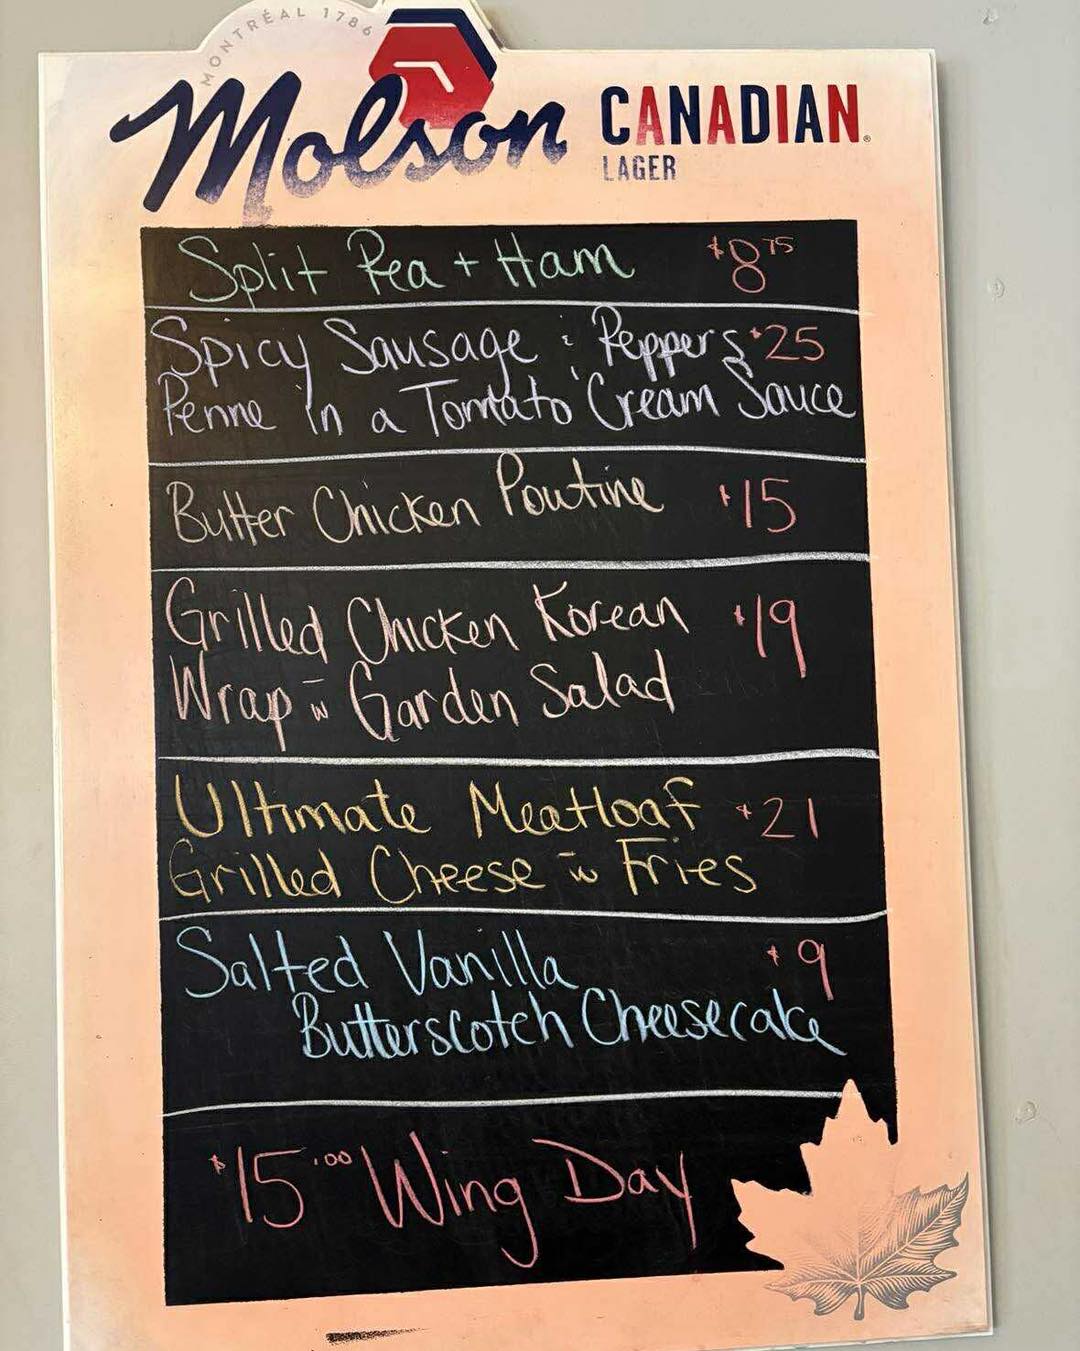 MONTRÉAL 1786
Molson CANADIAN®
LAGER
Split Pea + Ham $8.75
Spicy Sausage & Peppers $25
Penne in a Tomato Cream Sauce
Butter Chicken Poutine $15
Grilled Chicken Korean $19
Wrap w Garden Salad
Ultimate Meatloaf $21
Grilled Cheese w Fries
Salted Vanilla $9
Butterscotch Cheesecake
$15.00 Wing Day